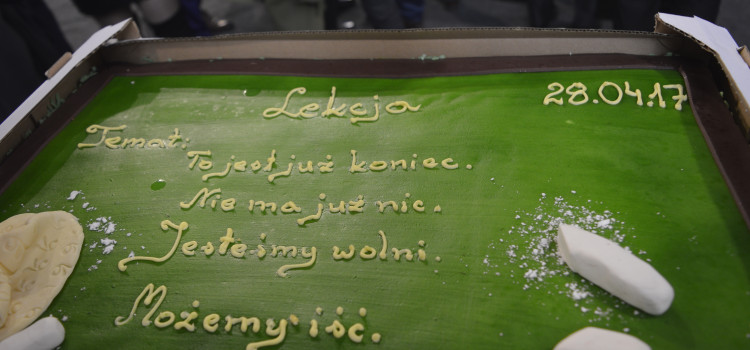 Lekcja
28.04.17
Temat: To jest już koniec.
Nie ma już nic.
Jesteśmy wolni.
Możemy iść.